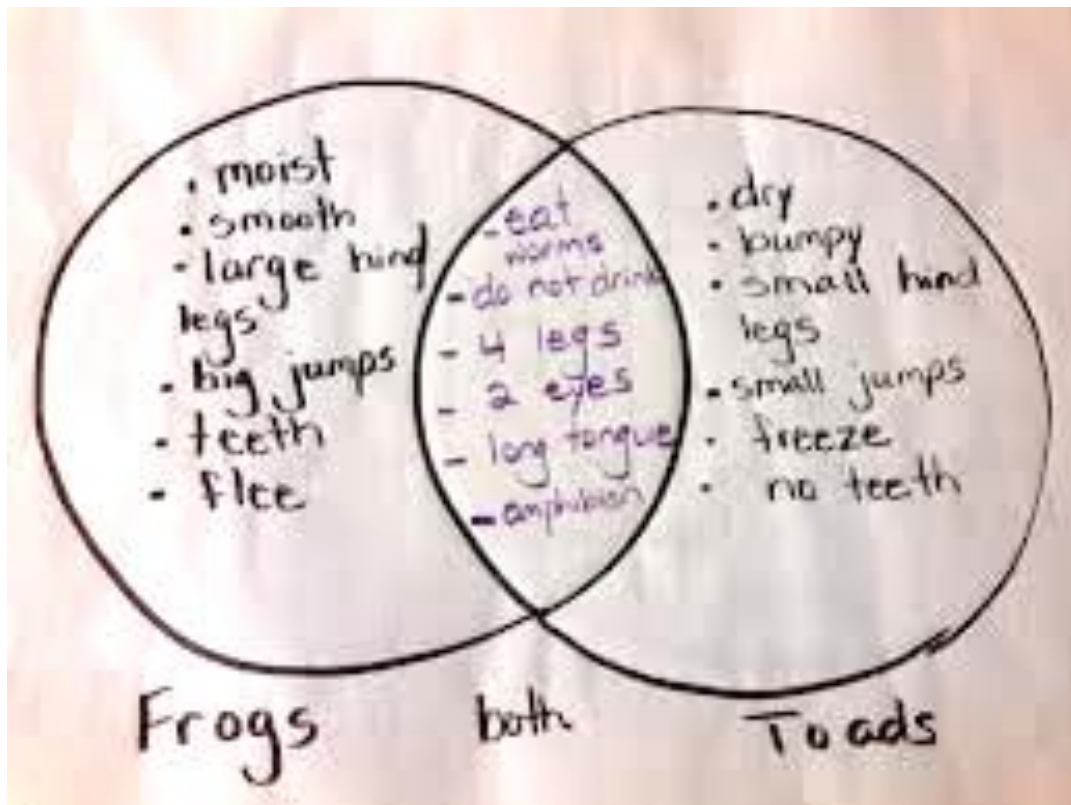 • moist
• smooth
• large hind
legs
• big jumps
• teeth
• flee
- eat
worms
- do not drink
- 4 legs
- 2 eyes
- long tongue
- amphibian
• dry
• bumpy
• small hind
legs
• small jumps
• freeze
• no teeth
Frogs
both
Toads